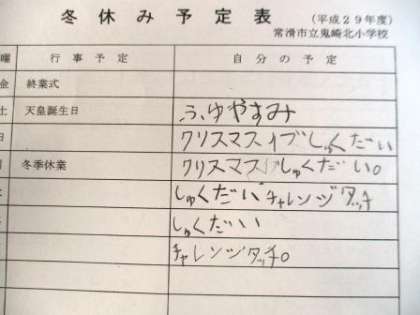 冬休み予定表 (平成29年度)
常滑市立鬼崎北小学校
曜 行事予定 自分の予定
金 終業式
土 天皇誕生日 ふゆやすみ
日 クリスマスイブしゅくだい
月 冬季休業 クリスマスしゅくだい。
しゅくだいチャレンジタッチ
しゅくだい
チャレンジタッチ。